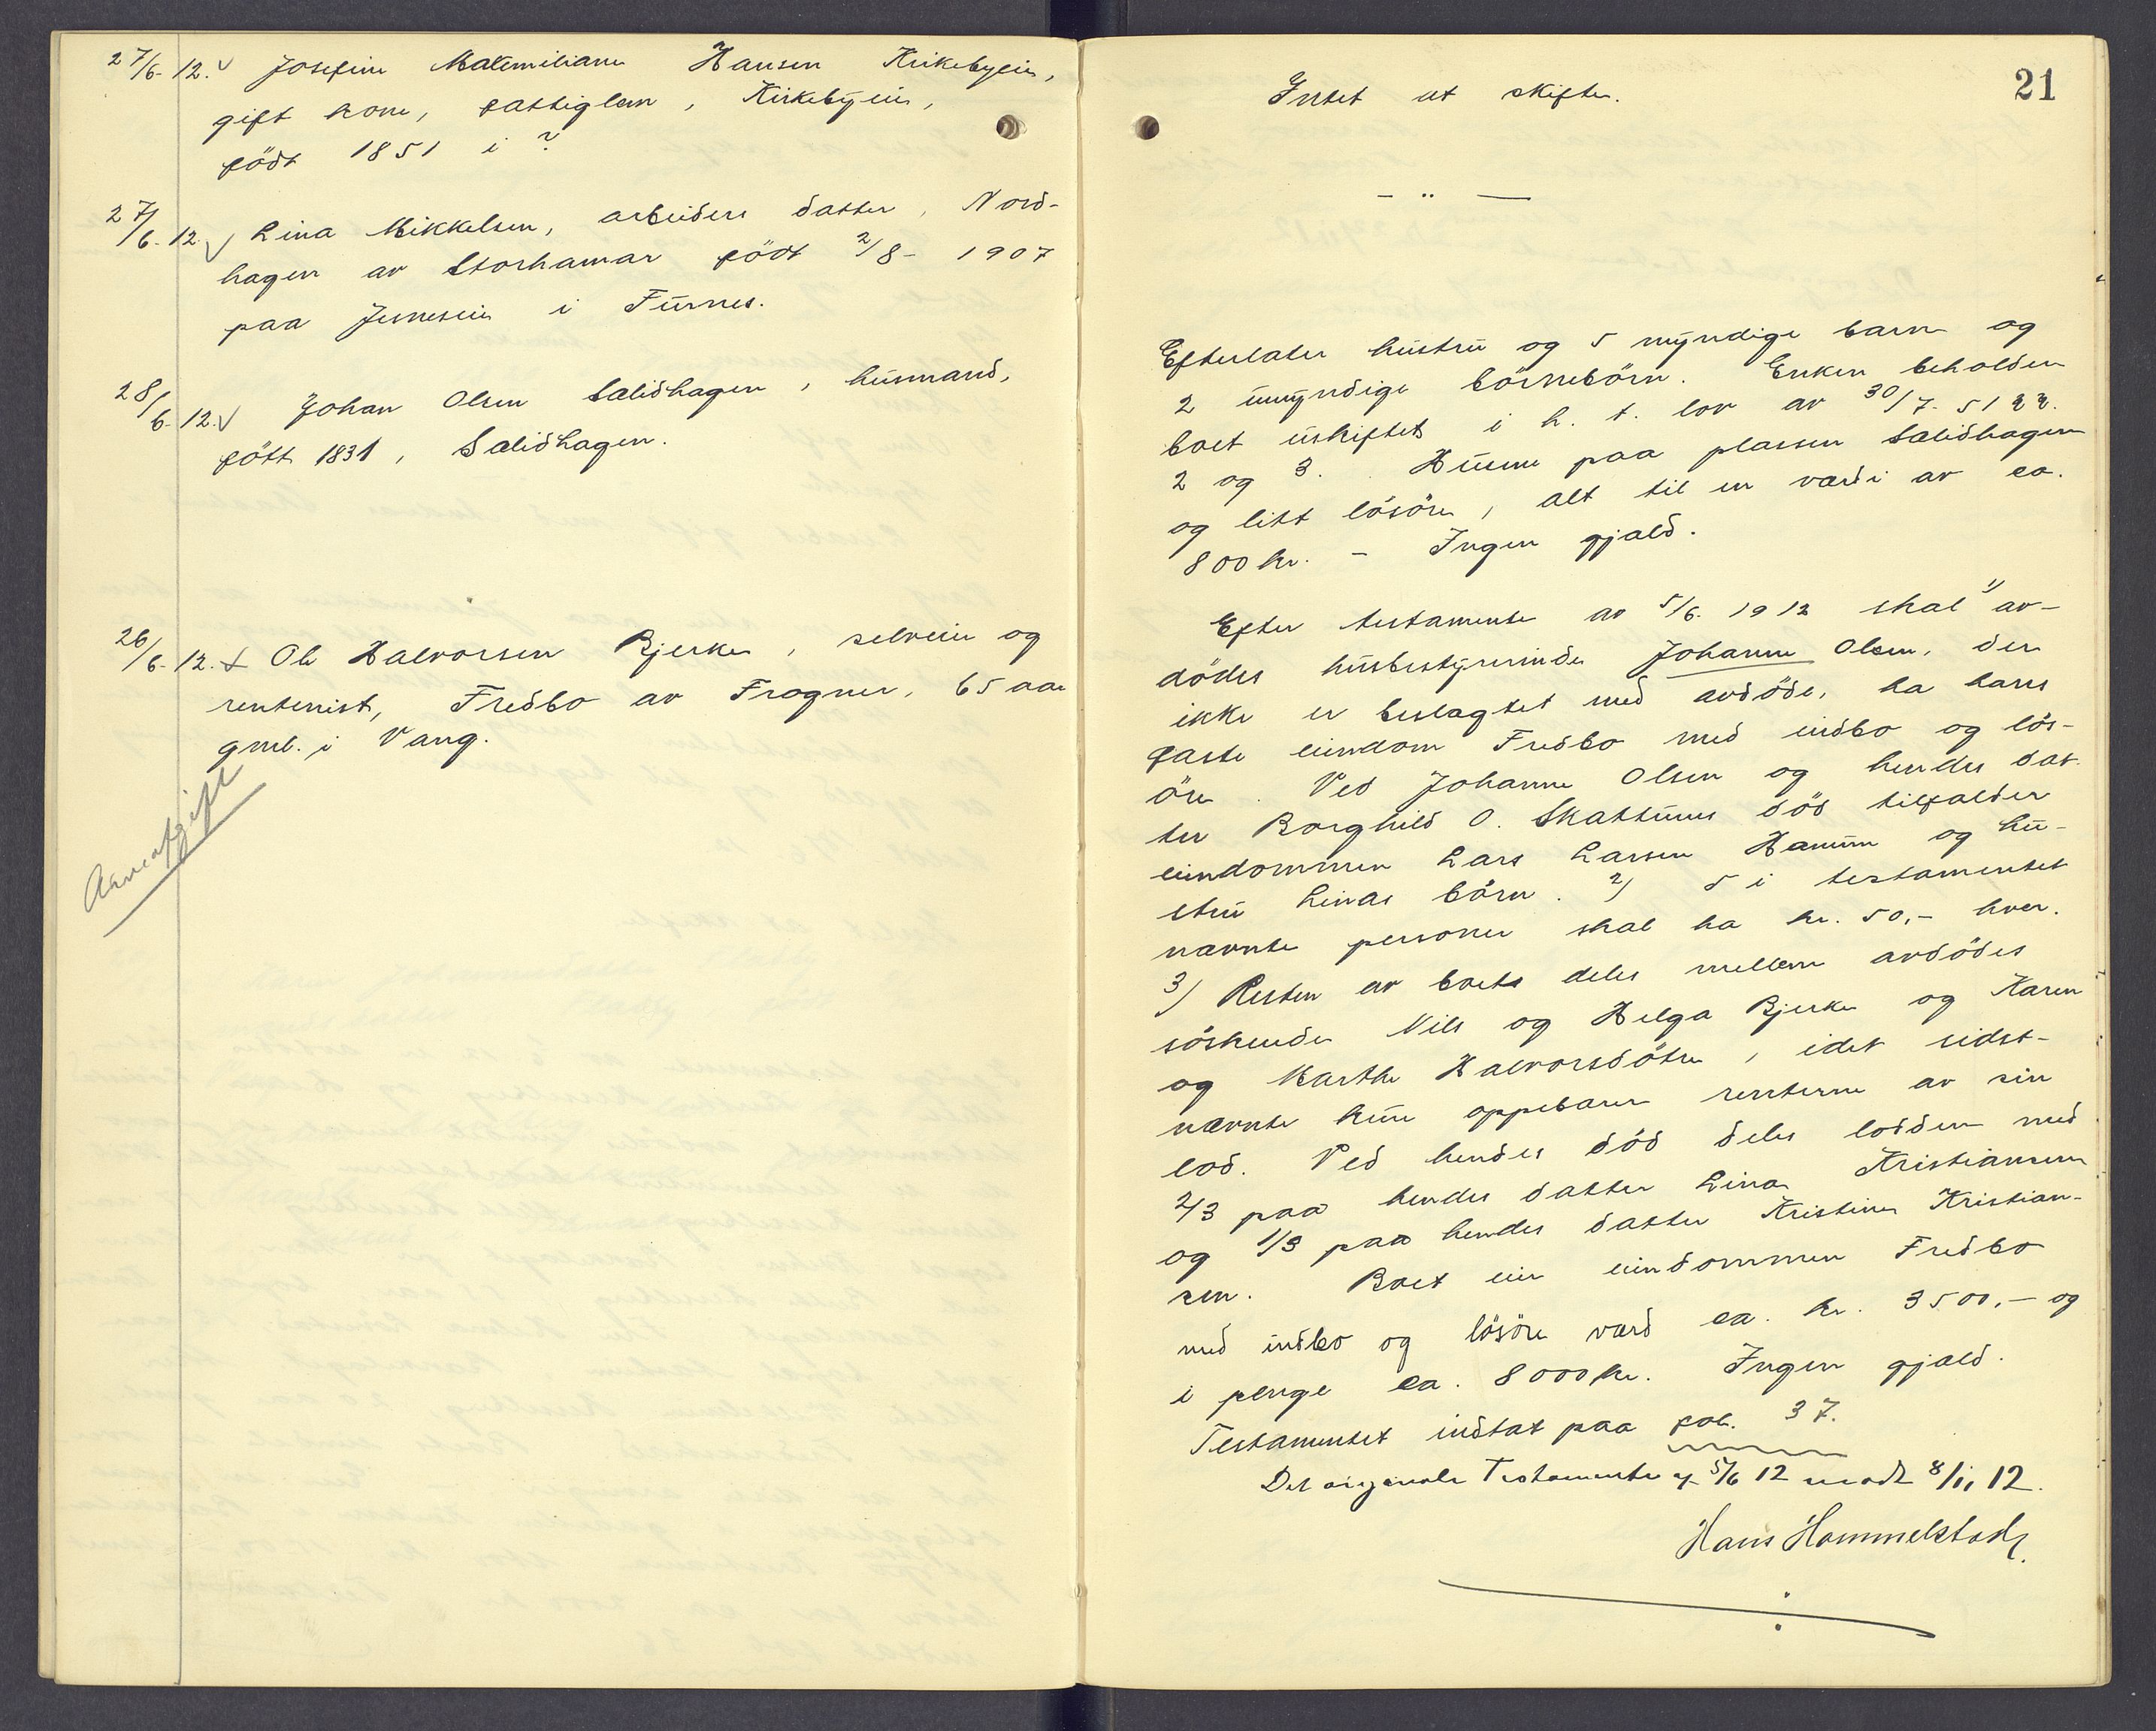 27/6-12. ✓ Josefine Maxemiliane Hansen Kirkebyeie,
gift kone, fattiglem, Kirkebyeie,
födt 1851 i ?
27/6-12. ✓ Lina Mikkelsen, arbeiders datter, Nord-
hagen av Storhamar födt 2/8- 1907
paa Jesneseie i Furnes.
28/6-12. ✓ Johan Olsen Salidhagen, husmand,
fött 1831, Salidhagen.
26/6-12. + Ole Halvorsen Bjerke, selveier og
rentenist, Fredbo av Frogner, 65 aar
gml. i Vang.
Arveafgift
21
Intet at skifte.
- " -
Efterlater hustru og 5 myndige barn og
2 umyndige börnebörn. Enken beholder
boet uskiftet i h. t. lov av 30/7-51 §§
2 og 3. Husene paa plassen Salidhagen
og litt lösöre, alt til en værdi av ca.
800 kr. - Ingen gjæld.
Efter testamente av 5/6-1912 skal 1) av-
dödes husbestyrerinde Johanne Olsen, der
ikke er beslagtet med avdöde, ha hans
faste eiendom Fredbo med indbo og lös-
öre. Ved Johanne Olsen og hendes dat-
ter Borghild O. Skattums död tilfalder
eiendommen Lars Larsen Hanum og hu-
stru Linas börn. 2) 5 i testamentet
nævnte personer skal ha kr. 50,- hver.
3) Resten av boet deles mellem avdödes
söskende Nils og Helga Bjerke og Karen
og Marthe Halvorsdötre, idet sidst-
nævnte kun oppebærer renterne av sin
lod. Ved hendes död deles lodden med
2/3 paa hendes datter Lina Kristiansen
og 1/3 paa hendes datter Kristine Kristian-
sen. Boet eier eiendommen Fredbo
med indbo og lösöre værd ca. kr. 3500,- og
i penge ca. 8000 kr. Ingen gjæld.
Testamentet indtat paa fol. 37.
Det originale Testamente af 5/6 12 modt. 8/11 12.
Hans Hommelstad